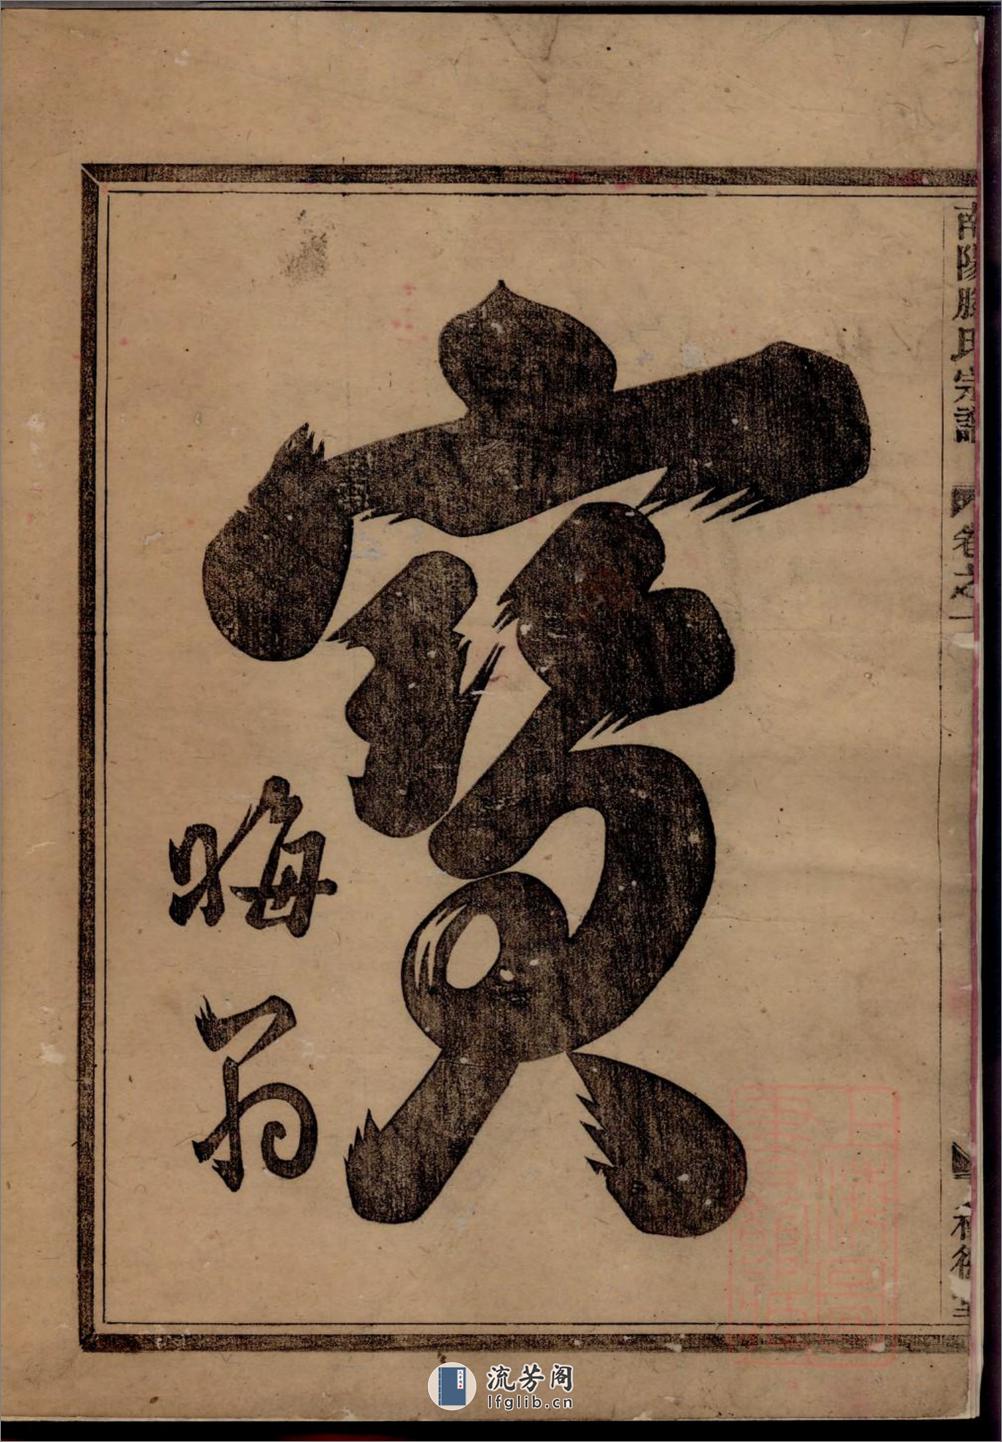 南陽滕氏宗譜 卷之一
寶
晦翁
流芳阁
lfglib.cn